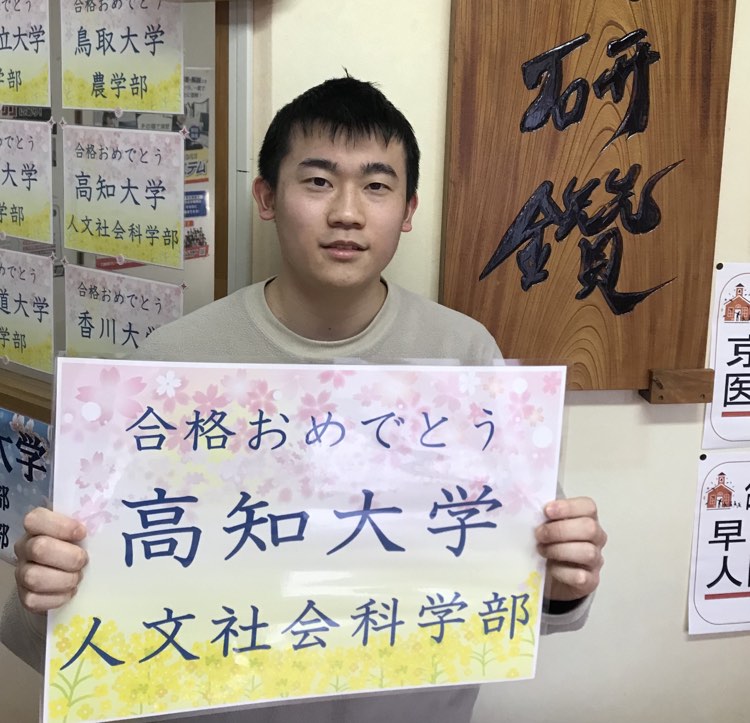 合格おめでとう
立大学
学部
合格おめでとう
鳥取大学
農学部
大学
学部
合格おめでとう
高知大学
人文社会科学部
道大学
学部
合格おめでとう
香川大学
大学
部
部
研鑽
合格おめでとう
高知大学
人文社会科学部
京
医
早
人